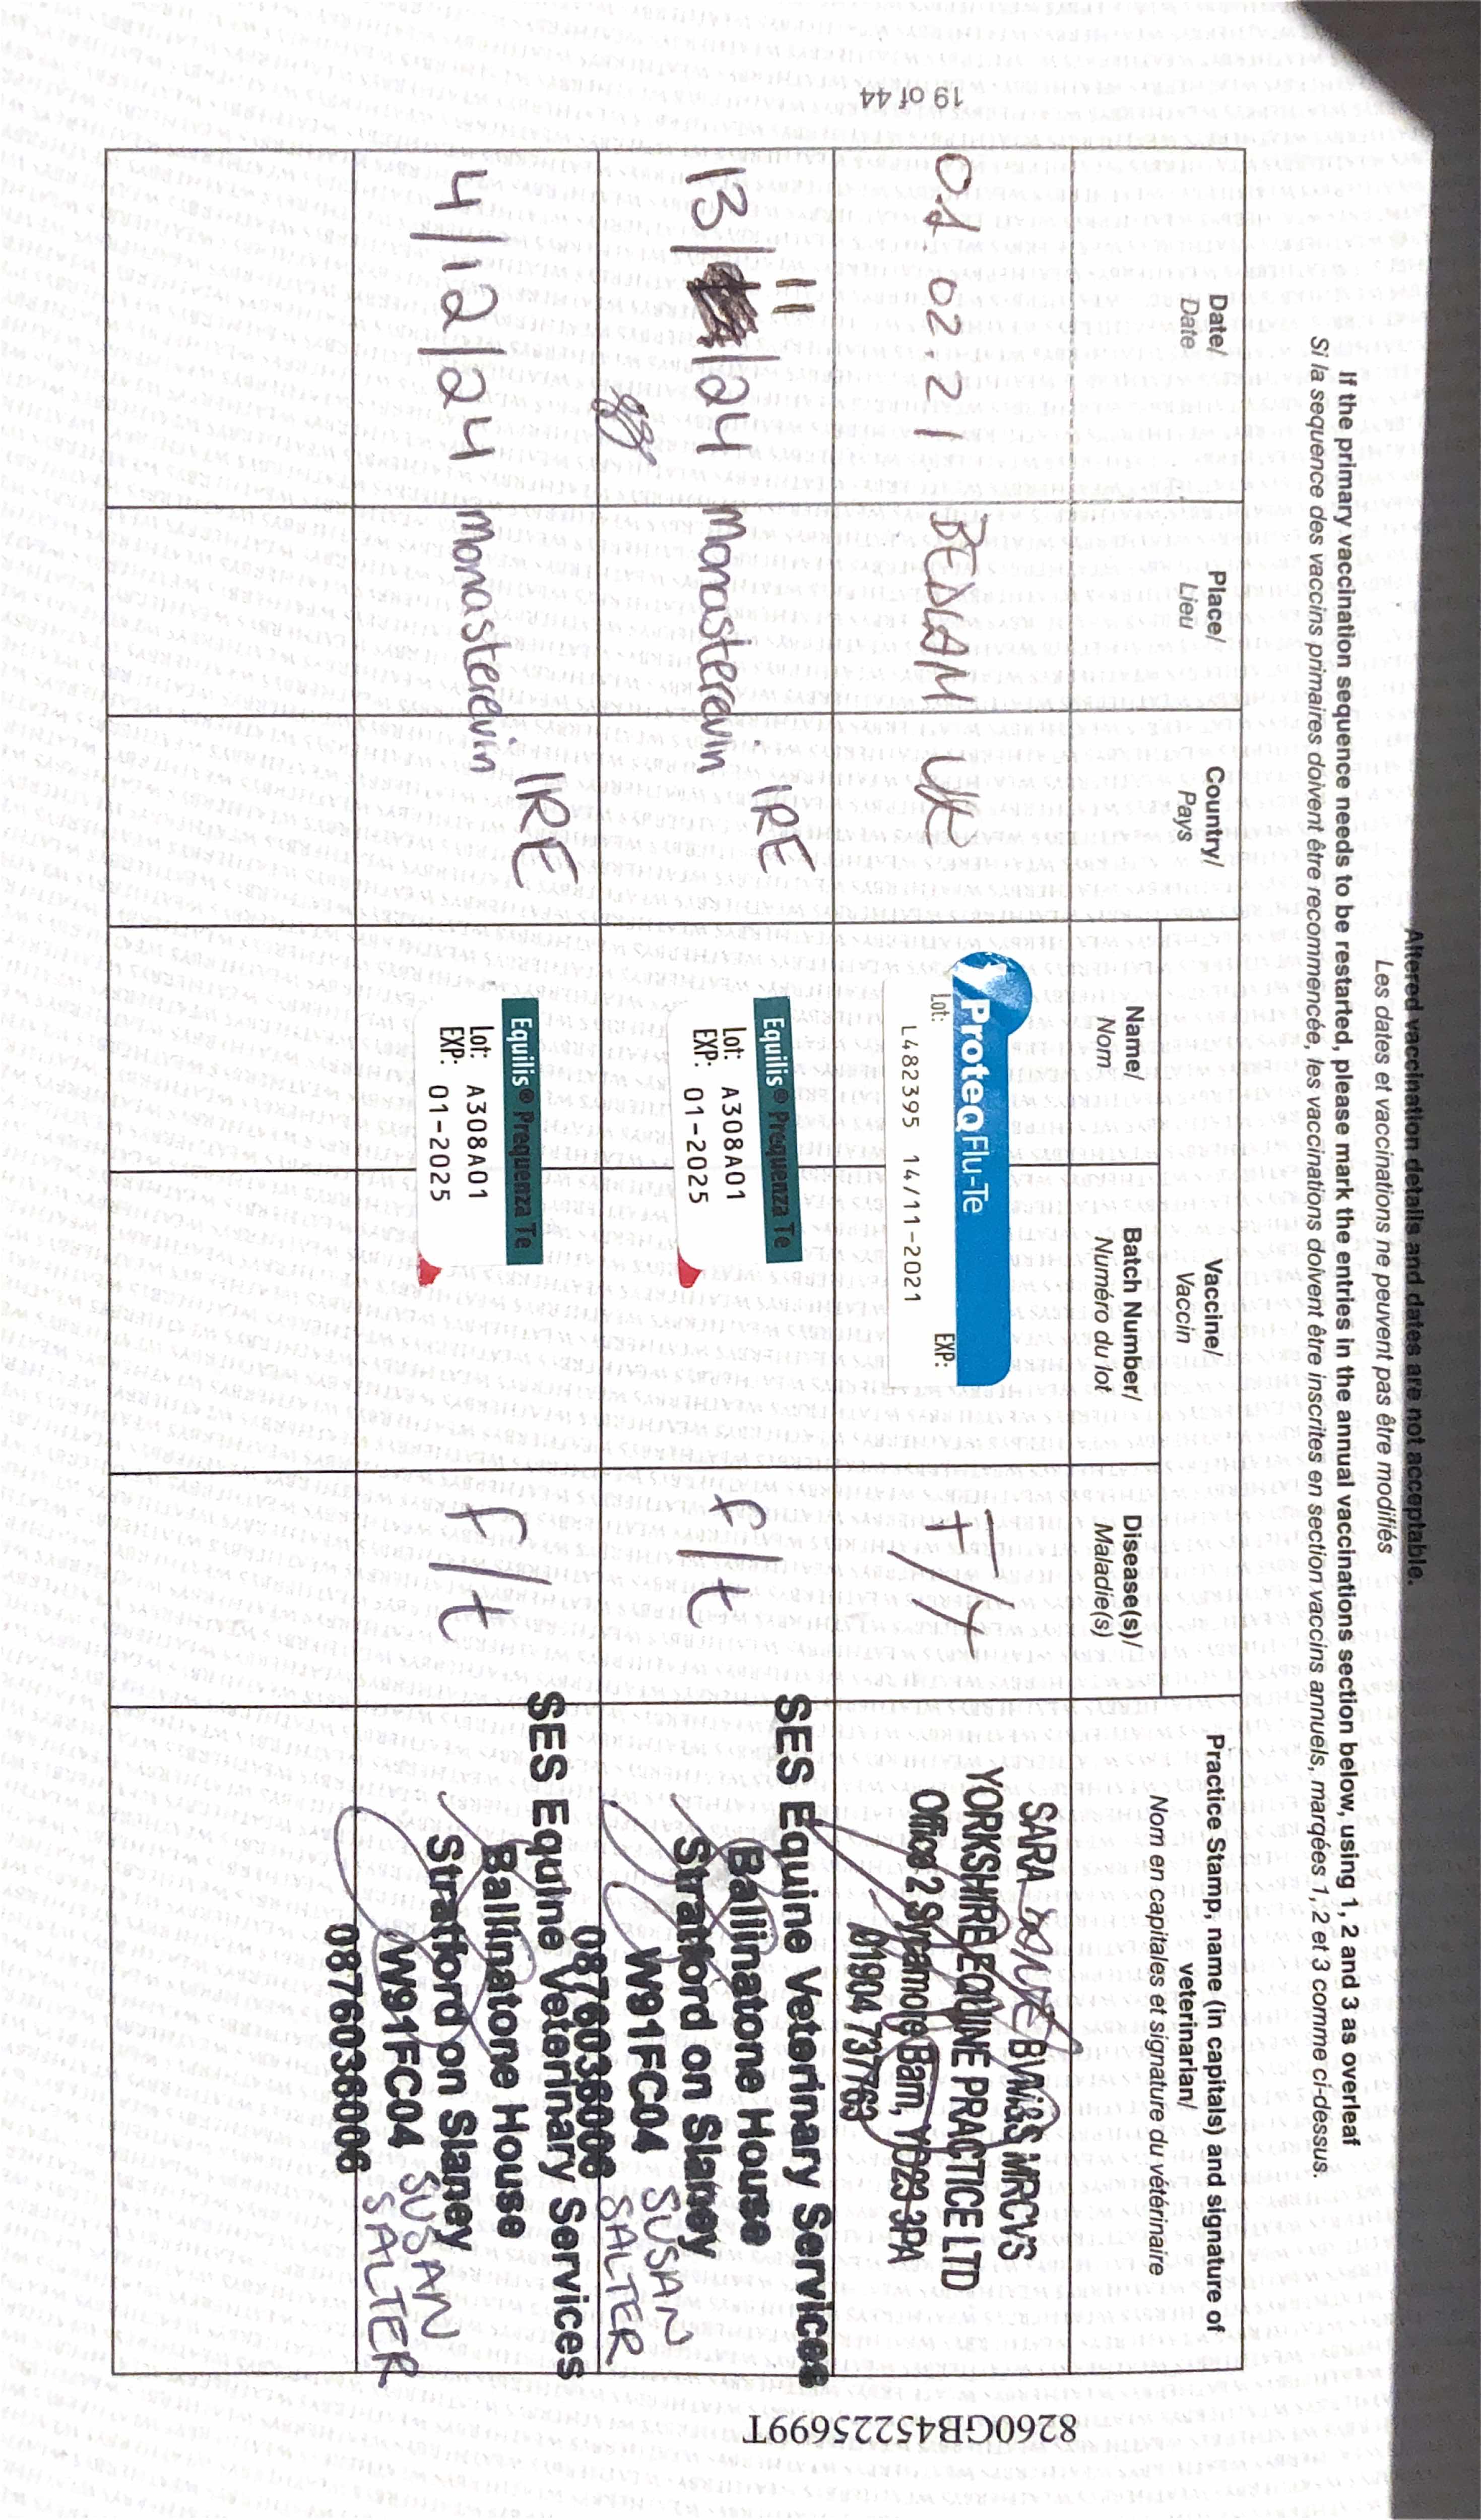 Altered vaccination details and dates are not acceptable.
Les dates et vaccinations ne peuvent pas être modifiés
If the primary vaccination sequence needs to be restarted, please mark the entries in the annual vaccinations section below, using 1, 2 and 3 as overleaf
Si la sequence des vaccins primaires doivent être recommencée, les vaccinations doivent être inscrites en section vaccins annuels, marqées 1, 2 et 3 comme ci-dessus.
Date/
Date
Place/
Lieu
Country/
Pays
Vaccine/
Vaccin
Name/
Nom
Batch Number/
Numéro du lot
Disease(s)/
Maladie(s)
Practice Stamp, name (in capitals) and signature of
veterinarian/
Nom en capitales et signature du vétérinaire
02.21
UK
ProteqFlu-Te
Lot: EXP:
L482395 14/11-2021
SARA BVMBS MRCVS
YORKSHIRE EQUINE PRACTICE LTD
Office 2 Sycamore Barn, YO23 3PA
01904 737769
13/11/24
Monasterevin
IRE
Equilis® Prequenza Te
Lot: A308A01
EXP: 01-2025
f/t
SES Equine Veterinary Services
Ballinatone House
Stratford on Slaney
W91FC04
0876036006
SUSAN
SALTER
4/12/24
Monasterevin
IRE
Equilis® Prequenza Te
Lot: A308A01
EXP: 01-2025
f/t
SES Equine Veterinary Services
Ballinatone House
Stratford on Slaney
W91FC04
0876036006
SUSAN
SALTER
19 of 44
8260GB45225699T